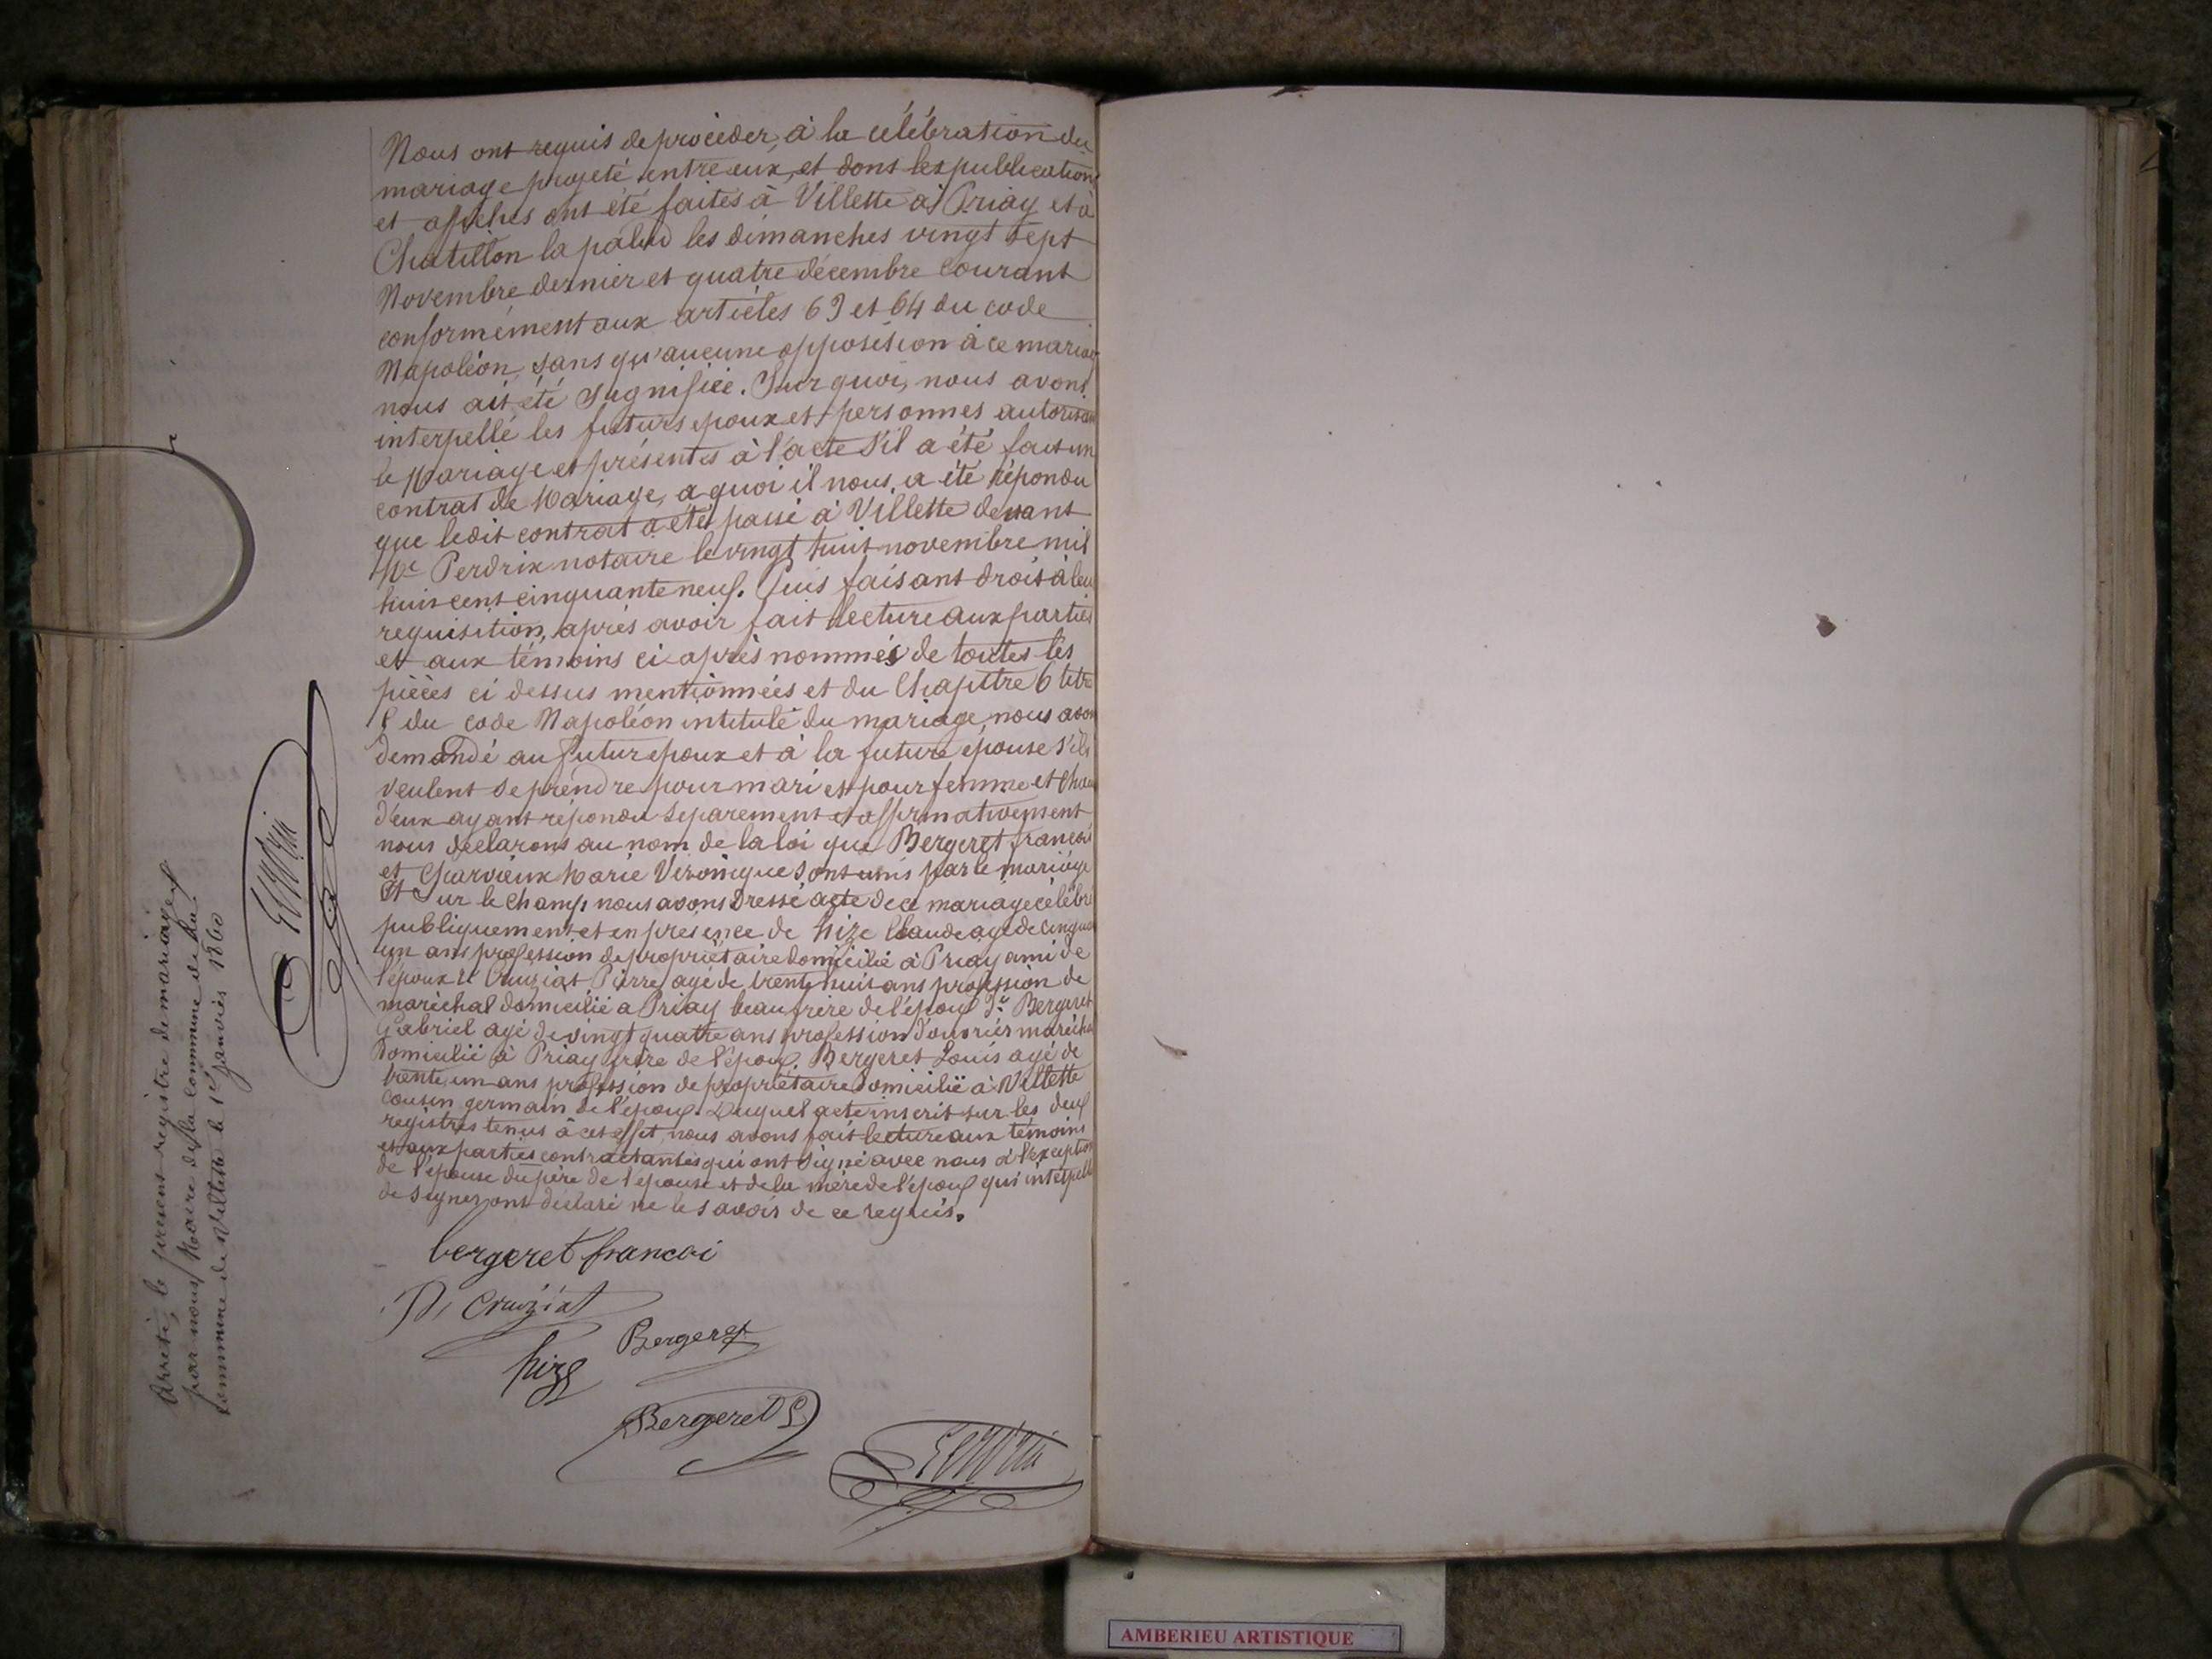 Nous ont requis de procéder, à la célébration du
mariage projeté entre eux, et dont les publications
et affiches ont été faites à Villette à Priay et à
Chatillon la palud les dimanches vingt sept
Novembre dernier et quatre décembre courant
conformément aux articles 63 et 64 du code
Napoléon, sans qu'aucune opposition à ce mariage
nous ait été signifiée. Sur quoi, nous avons
interpellé les futurs époux et personnes autorisant
le Mariage et présentes à l'acte s'il a été fait un
contrat de Mariage, a quoi il nous a été répondu
que ledit contrat a été passé à Villette devant
Me Perdrix notaire le vingt huit novembre mil
huit cent cinquante neuf. Puis faisant droit à leur
requisition, après avoir fait lecture aux parties
et aux témoins ci après nommés de toutes les
pièces ci dessus mentionnées et du Chapitre 6 titre
5 du code Napoléon intitulé du mariage, nous avons
demandé au futur époux et à la future épouse s'ils
veulent se prendre pour mari et pour femme et chacun
d'eux ayant répondu séparement et affirmativement
nous déclarons au nom de la loi que Bergeret françois
et Charvieux Marie Véronique sont unis par le mariage
Et sur le champ nous avons dressé acte de ce mariage célébré
publiquement et en présence de hize Claude agé de cinquante
un ans profession de propriétaire domicilié à Priay ami de
l'époux 2e Cruiziat Pierre agé de trente huit ans profession de
maréchal domicilié a Priay beau frère de l'époux 3e Bergeret
Gabriel agé de vingt quatre ans profession d'ouvrier maréchal
domicilié à Priay frère de l'époux. Bergeret Louis agé de
trente un ans profession de propriétaire domicilié à Villette
cousin germain de l'époux. Duquel acte inscrit sur les deux
registres tenus à cet effet, nous avons fait lecture aux témoins
et aux parties contractantes qui ont signé avec nous à l'exception
de l'épouse du père de l'épouse et de la mère de l'époux qui interpellés
de signer ont déclaré ne le savoir de ce requis.
bergeret francoi
P. Cruiziat
Bergeret
hize
Bergeret L
Perdrix
Arreté, le présent registre de mariage
par nous Maire de la commune de la
commune de Villette le 1er janvier 1860
Perdrix
AMBERIEU ARTISTIQUE